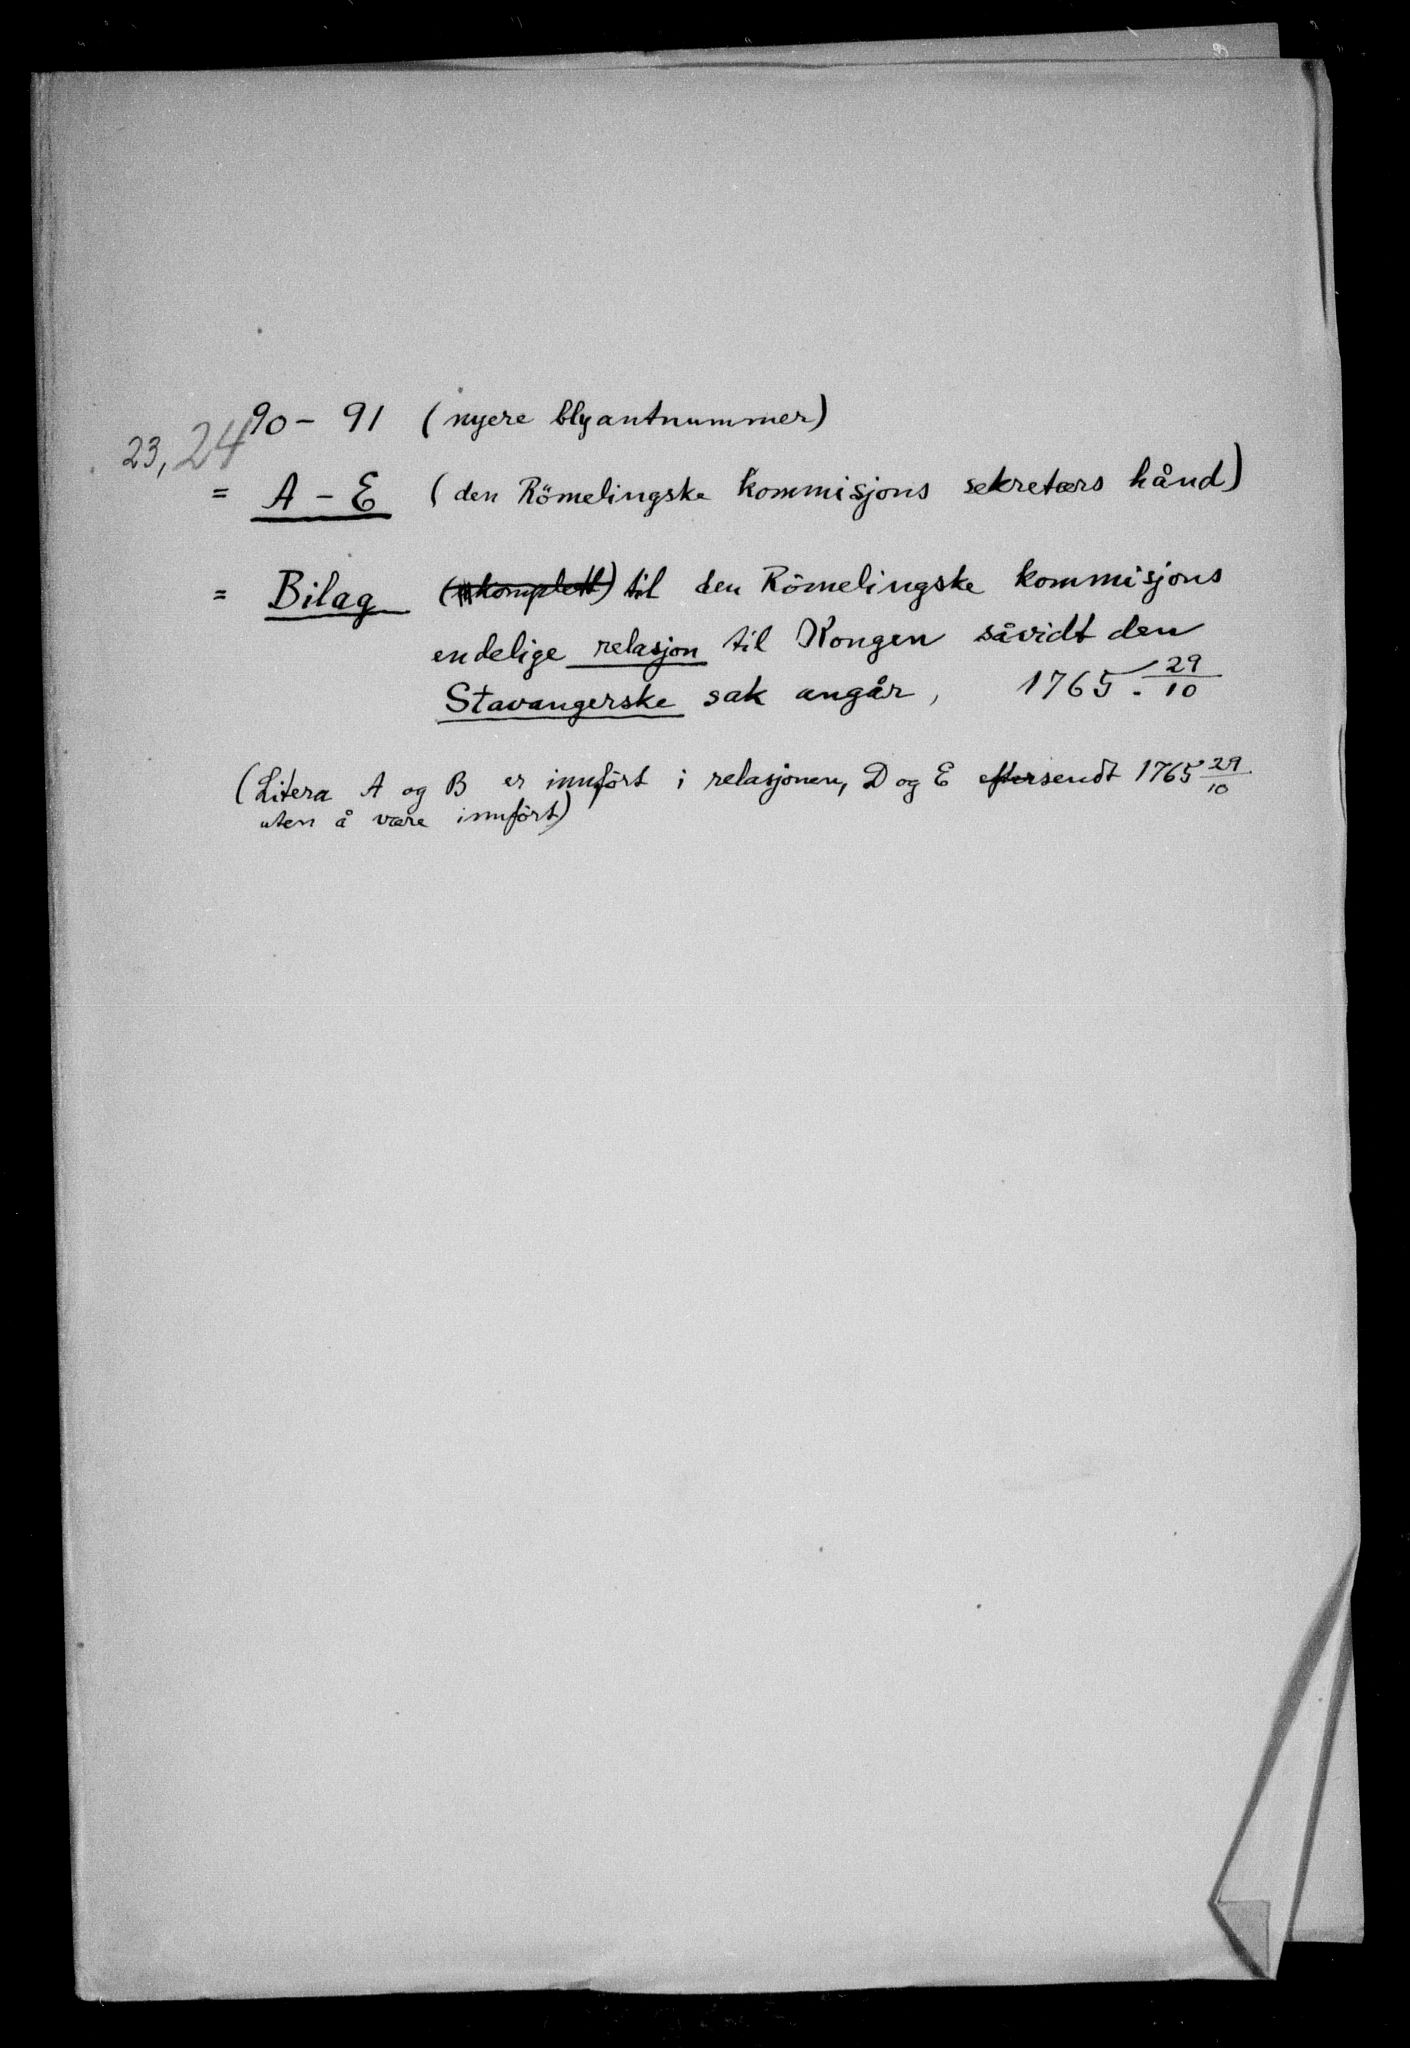 90 – 91 (nyere blyantnummer)
23, 24
= A – E (den Römelingske kommisjons sekretærs hånd)
= Bilag (komplett) til den Römelingske kommisjons
endelige relasjon til Kongen såvidt den
Stavangerske sak angår, 1765 . 29/10
(Litera A og B er innført i relasjonen, D og E eftersendt 1765 29/10
uten å være innført)